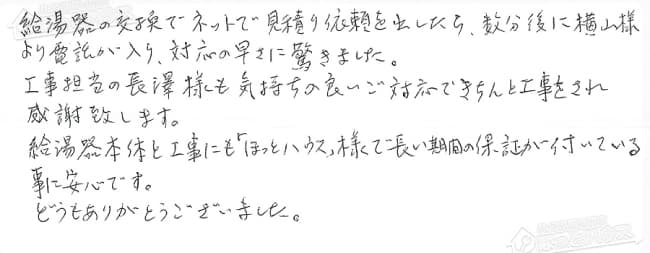 給湯器の交換でネットで見積り依頼を出したら、数分後に横山様
より電話が入り、対応の早さに驚きました。
工事担当の長澤様も気持ちの良いご対応できちんと工事をされ
感謝致します。
給湯器本体と工事にも「ほっとハウス」様で長い期間の保証が付いている
事に安心です。
どうもありがとうございました。